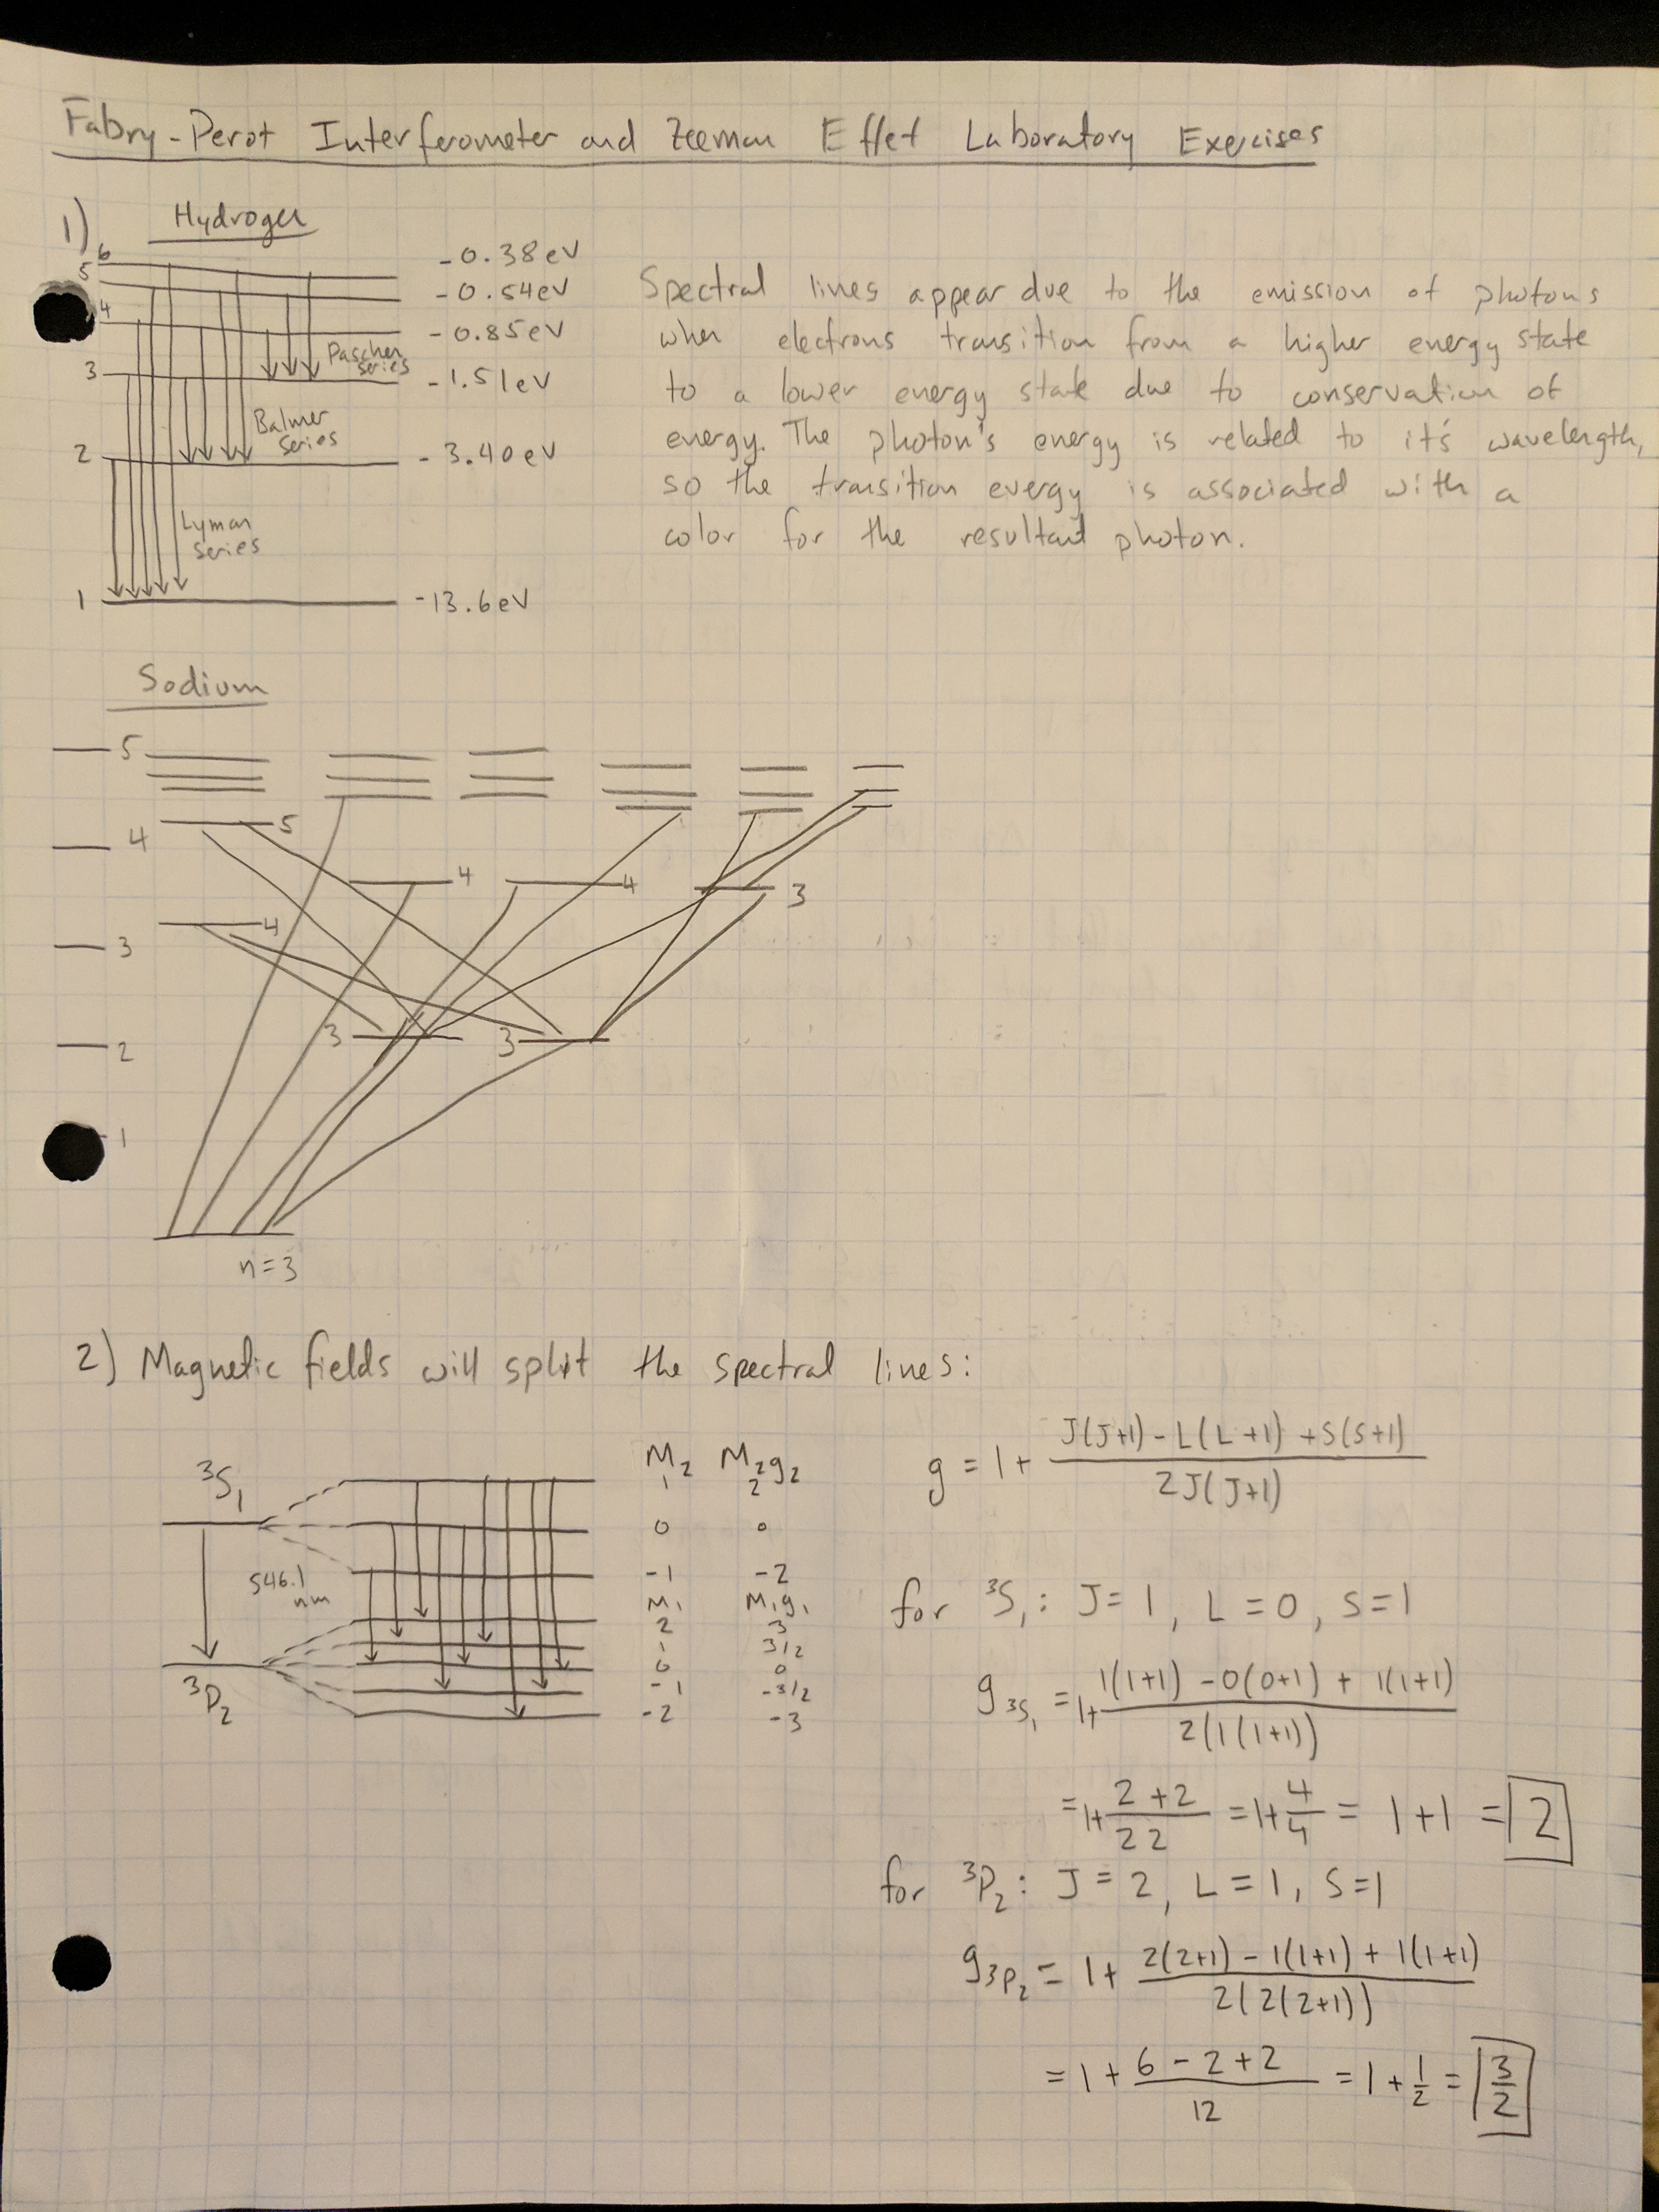 Fabry-Perot Interferometer and Zeeman Effet Laboratory Exercises
1) Hydrogen
6
5
4
3
2
1
-0.38eV
-0.54eV
-0.85eV
-1.51eV
-3.40eV
-13.6eV
Paschen
series
Balmer
series
Lyman
series
Spectral lines appear due to the emission of photons
when electrons transition from a higher energy state
to a lower energy state due to conservation of
energy. The photon's energy is related to it's wavelength,
so the transition energy is associated with a
color for the resultant photon.
Sodium
5
4
3
2
1
5
4
4
4
3
3
3
n=3
2) Magnetic fields will split the spectral lines:
³S₁
546.1
nm
³P₂
M₂ M₂g₂
1 2
0 0
-1 -2
M₁ M₁g₁
2 3
1 3/2
0 0
-1 -3/2
-2 -3
g = 1 + (J(J+1) - L(L+1) + S(S+1)) / 2J(J+1)
for ³S₁: J=1, L=0, S=1
g³S₁ = 1+ (1(1+1) - 0(0+1) + 1(1+1)) / 2(1(1+1))
= 1+ (2+2) / 2 2 = 1+ 4/4 = 1+1 = 2
for ³P₂: J=2, L=1, S=1
g³P₂ = 1+ (2(2+1) - 1(1+1) + 1(1+1)) / 2(2(2+1))
= 1 + (6-2+2) / 12 = 1 + 1/2 = 3/2